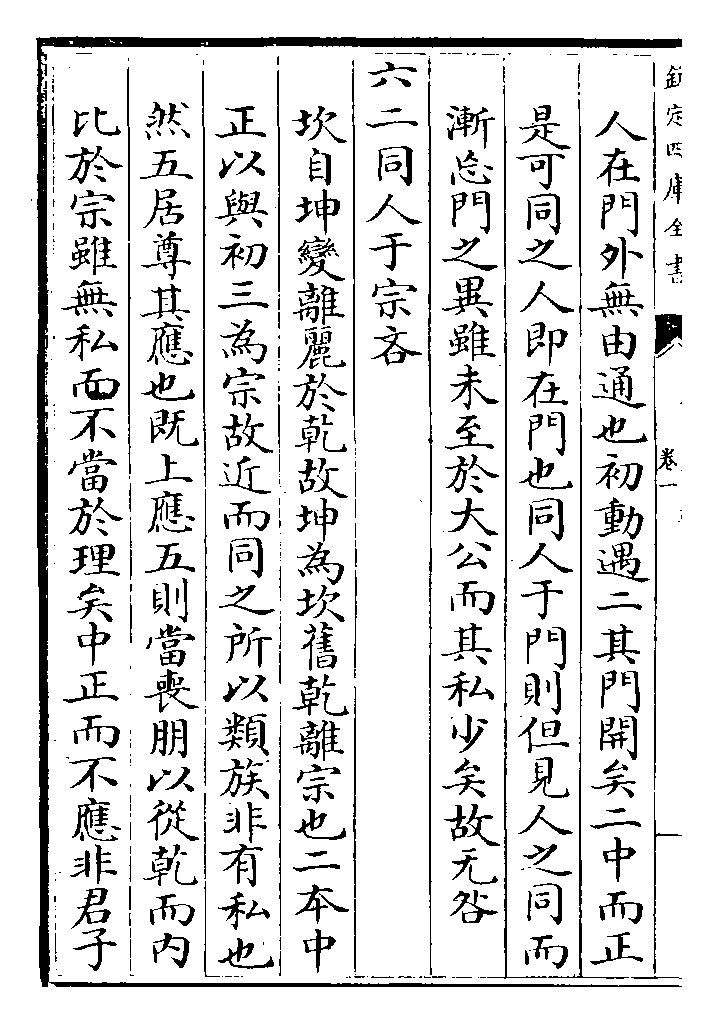 欽定四庫全書
卷一
人在門外無由通也初動遇二其門開矣二中而正
是可同之人即在門也同人于門則但見人之同而
漸忘門之異雖未至於大公而其私少矣故无咎
六二同人于宗吝
坎自坤變離麗於乾故坤為坎舊乾離宗也二本中
正以與初三為宗故近而同之所以類族非有私也
然五居尊其應也既上應五則當喪朋以從乾而内
比於宗雖無私而不當於理矣中正而不應非君子